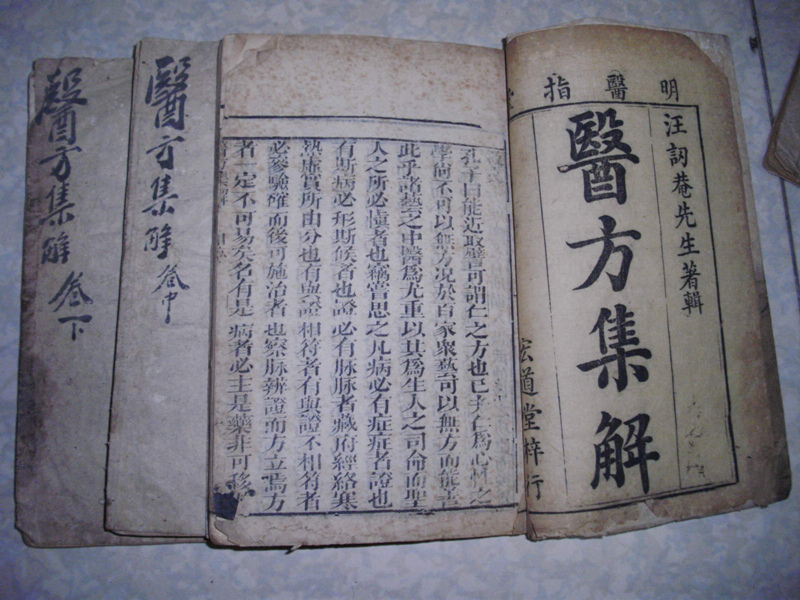 明醫指
汪訒菴先生著輯
醫方集解
宏道堂梓行
孔子曰能近取譬可謂仁之方也已夫仁為心性之
學尚不可以無方況於百家眾藝可以無方而能善
此乎諸藝之中醫為尤重以其為生人之司命而聖
人之所必慎者也竊嘗思之凡病必有症症者證也
有斯病必形斯候者也證必有脈脈者藏府經絡寒
熱虛實所由分也有與證相符者有與證不相符者
必參驗確而後可施治者也察脈辨證而方立焉方
者一定不可易矣名有是病者必主是藥非可移
醫方集解
卷中
醫方集解
卷下